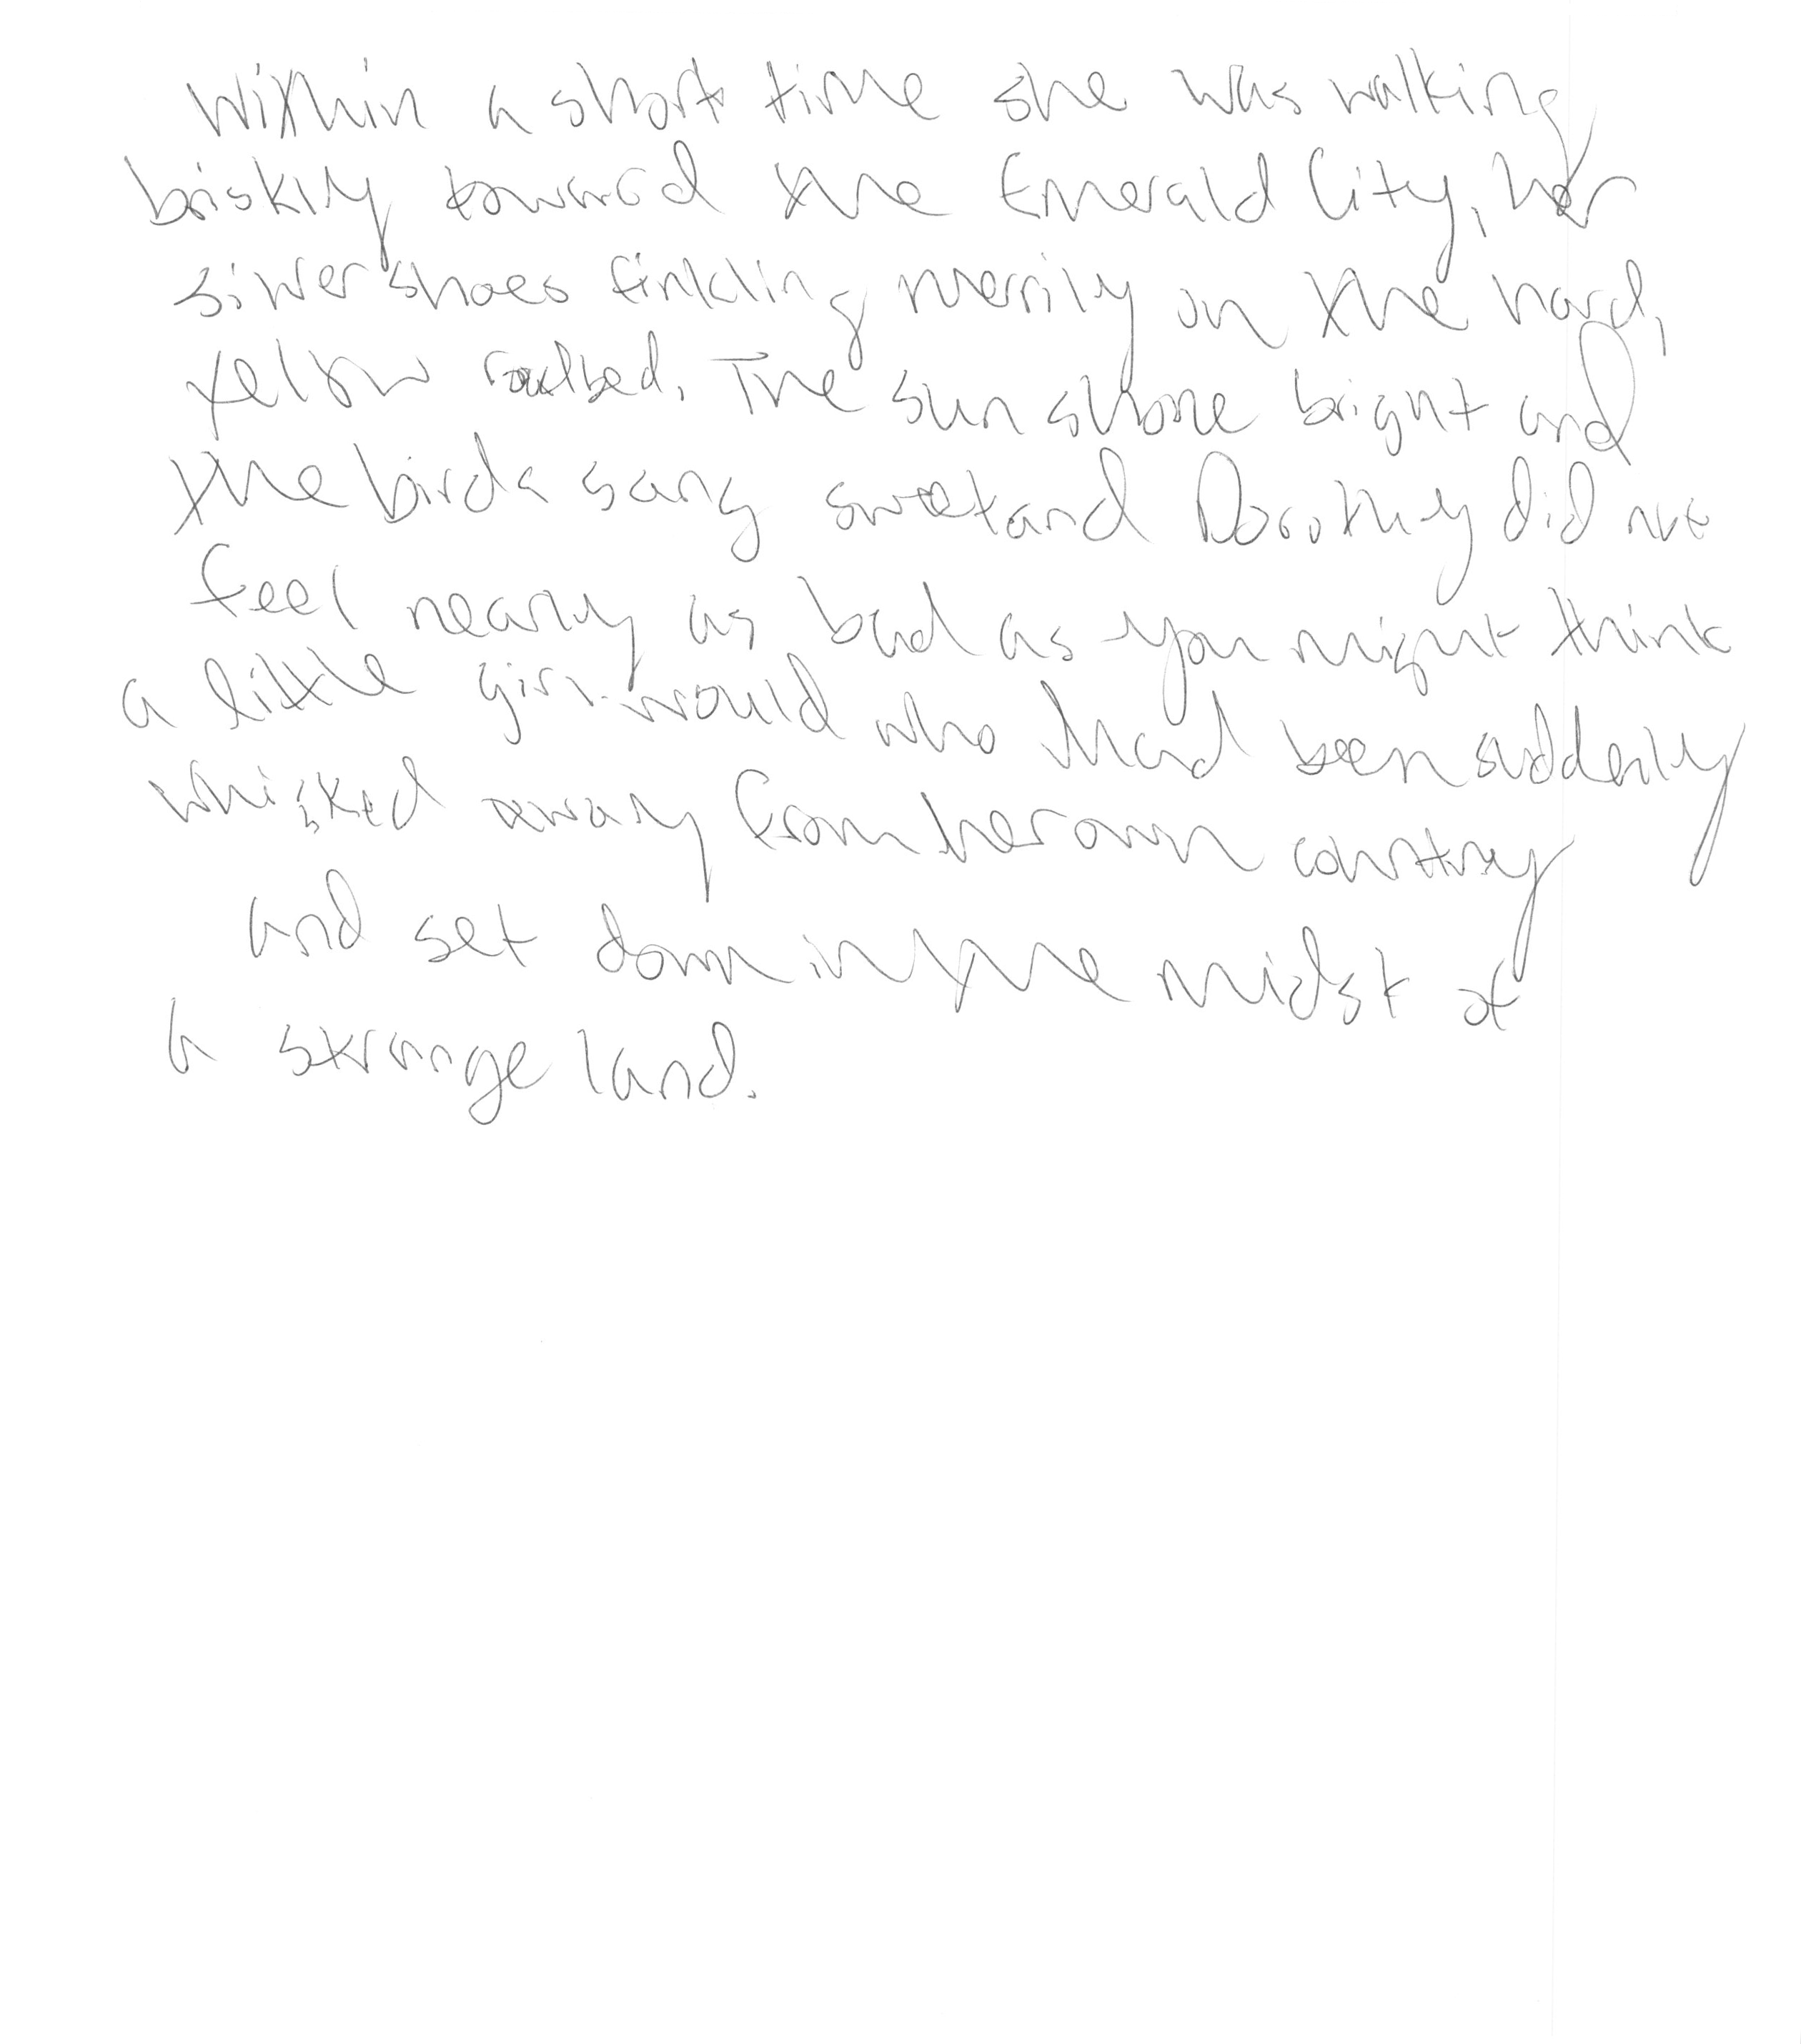 Within a short time she was walking
briskly toward the Emerald City, her
silver shoes tinkling merrily on the hard,
yellow roadbed. The sun shone bright and
the birds sang sweet and Dorothy did not
feel nearly as bad as you might think
a little girl would who had been suddenly
whisked away from her own country
and set down in the midst of
a strange land.